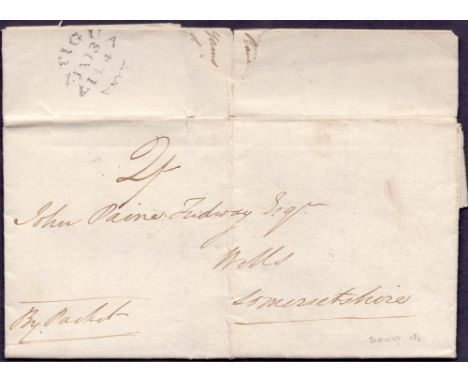 ANTIGUA
2/
John Paine Tudway Esqre
Wells
Somersetshire
By Packet